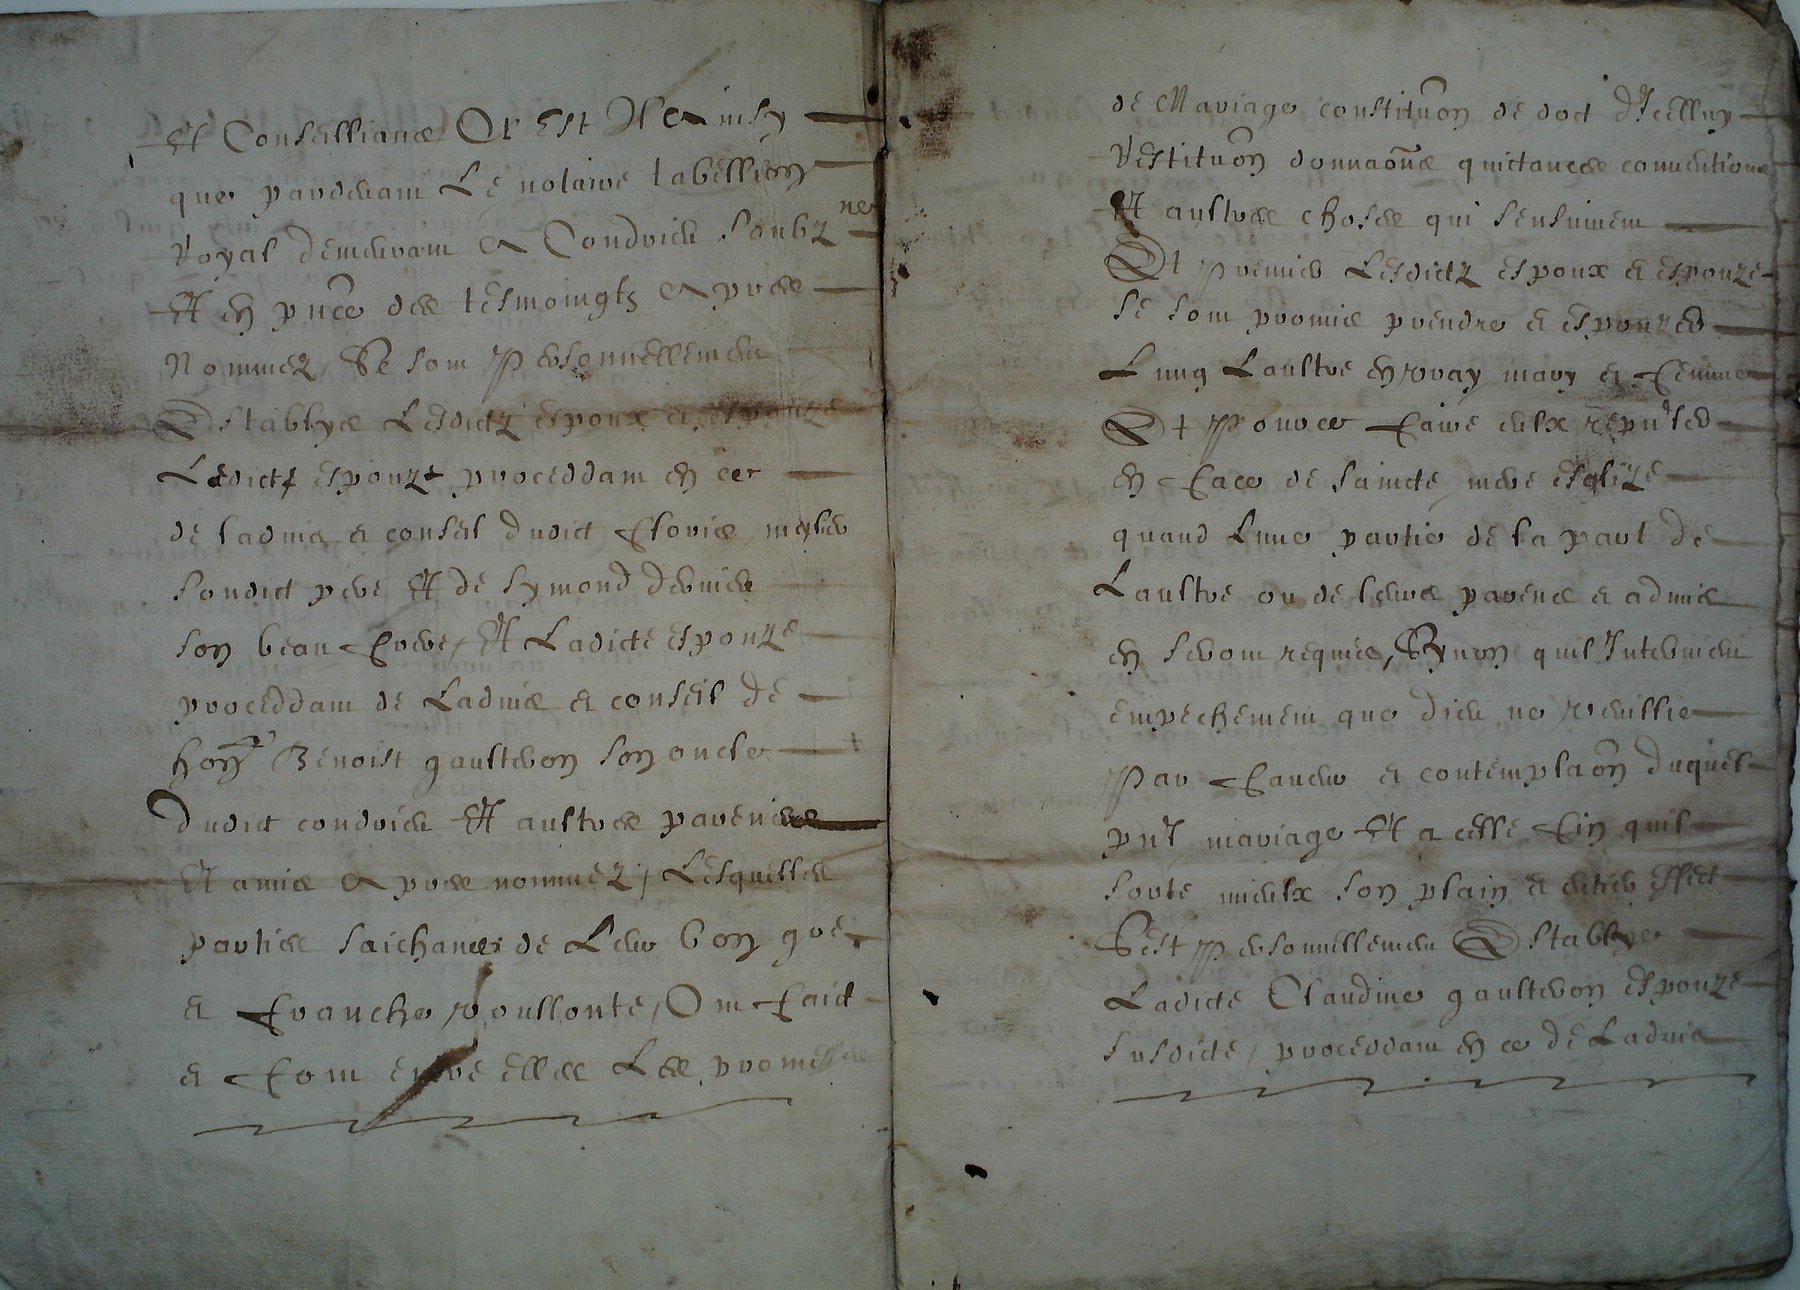 Et Conseillians Or Est Il Ainsy
que pardevant Le notaire tabellion
Royal demeurant A Condrieu soubzne
Et en pnce des tesmoingtz Apres
Nommez, Se sont Personnellement
Establys Lesdictz espoux et espouze
Ledict espouze proceddant en ce
de ladvis et conseil dudict Cloris
sondict pere Et de symond
son beau frere, Et Ladicte espouze
proceddant de Ladvis et conseil de
hon Benoist gaulteron son oncle
dudict condrieu Et aultres parentes
Et amis Apres nommez, Lesquelles
parties saichantes de Leur bon gre
et franche voullonte, Ont faict
et font entre elles Les promesses
de Mariage constituon de dot d'Icelluy
Restituon donnaons quictances conventions
Et aultres choses qui sensuivent
Et Premier Lesdictz espoux et espouze
se sont promis prendre et espouzer
Lung Laultre en vray mary et femme
Et Pour ce faire eulx
en face de saincte mere esglize
quand Lune partie de la part de
Laultre ou de leurs parens et admis
en seront requis, Synon quil Intervient
empechement que dieu ne veuillie
Par faveur et contemplaon duquel
pnt mariage Et a celle fin quil
sorte mieulx son plain et entier effect
Sest Personnellement Establye
Ladicte Claudine gaulteron espouze
susdicte, proceddant en ce de Ladvis